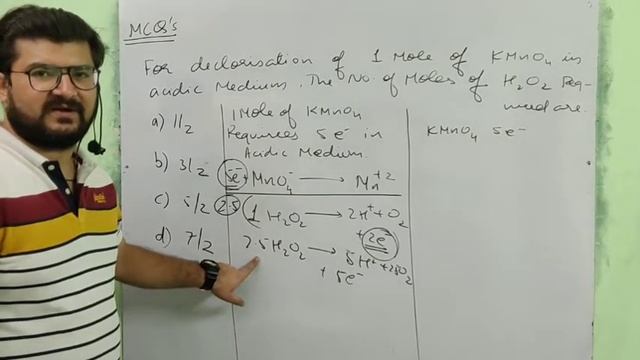 MCQ's
For declorisation of 1 Mole of KMnO4 in
acidic Medium. The No. of Moles of H2O2 Req-
uired are.
a) 1/2
b) 3/2
c) 5/2
d) 7/2
1 Mole of KMnO4
Requires 5e- in
Acidic Medium.
5e- + MnO4- → Mn+2
2.5 ( 1 H2O2 → 2H+ + O2
+ 2e-
2.5H2O2 → 5H+ + 2.5O2
+ 5e-
KMnO4 5e-